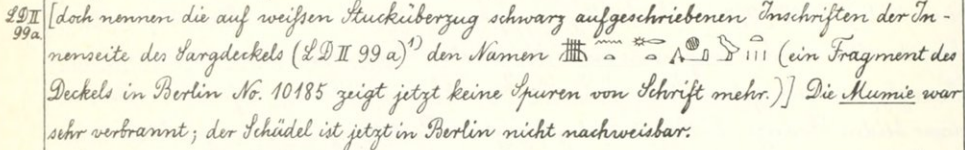 LDII [doch nennen die auf weißen Stucküberzug schwarz aufgeschriebenen Inschriften der In-
99a. nenseite des Sargdeckels (LDII 99a)¹⁾ den Namen (ein Fragment des
Deckels in Berlin No. 10185 zeigt jetzt keine Spuren von Schrift mehr.)] Die Mumie war
sehr verbrannt; der Schädel ist jetzt in Berlin nicht nachweisbar.